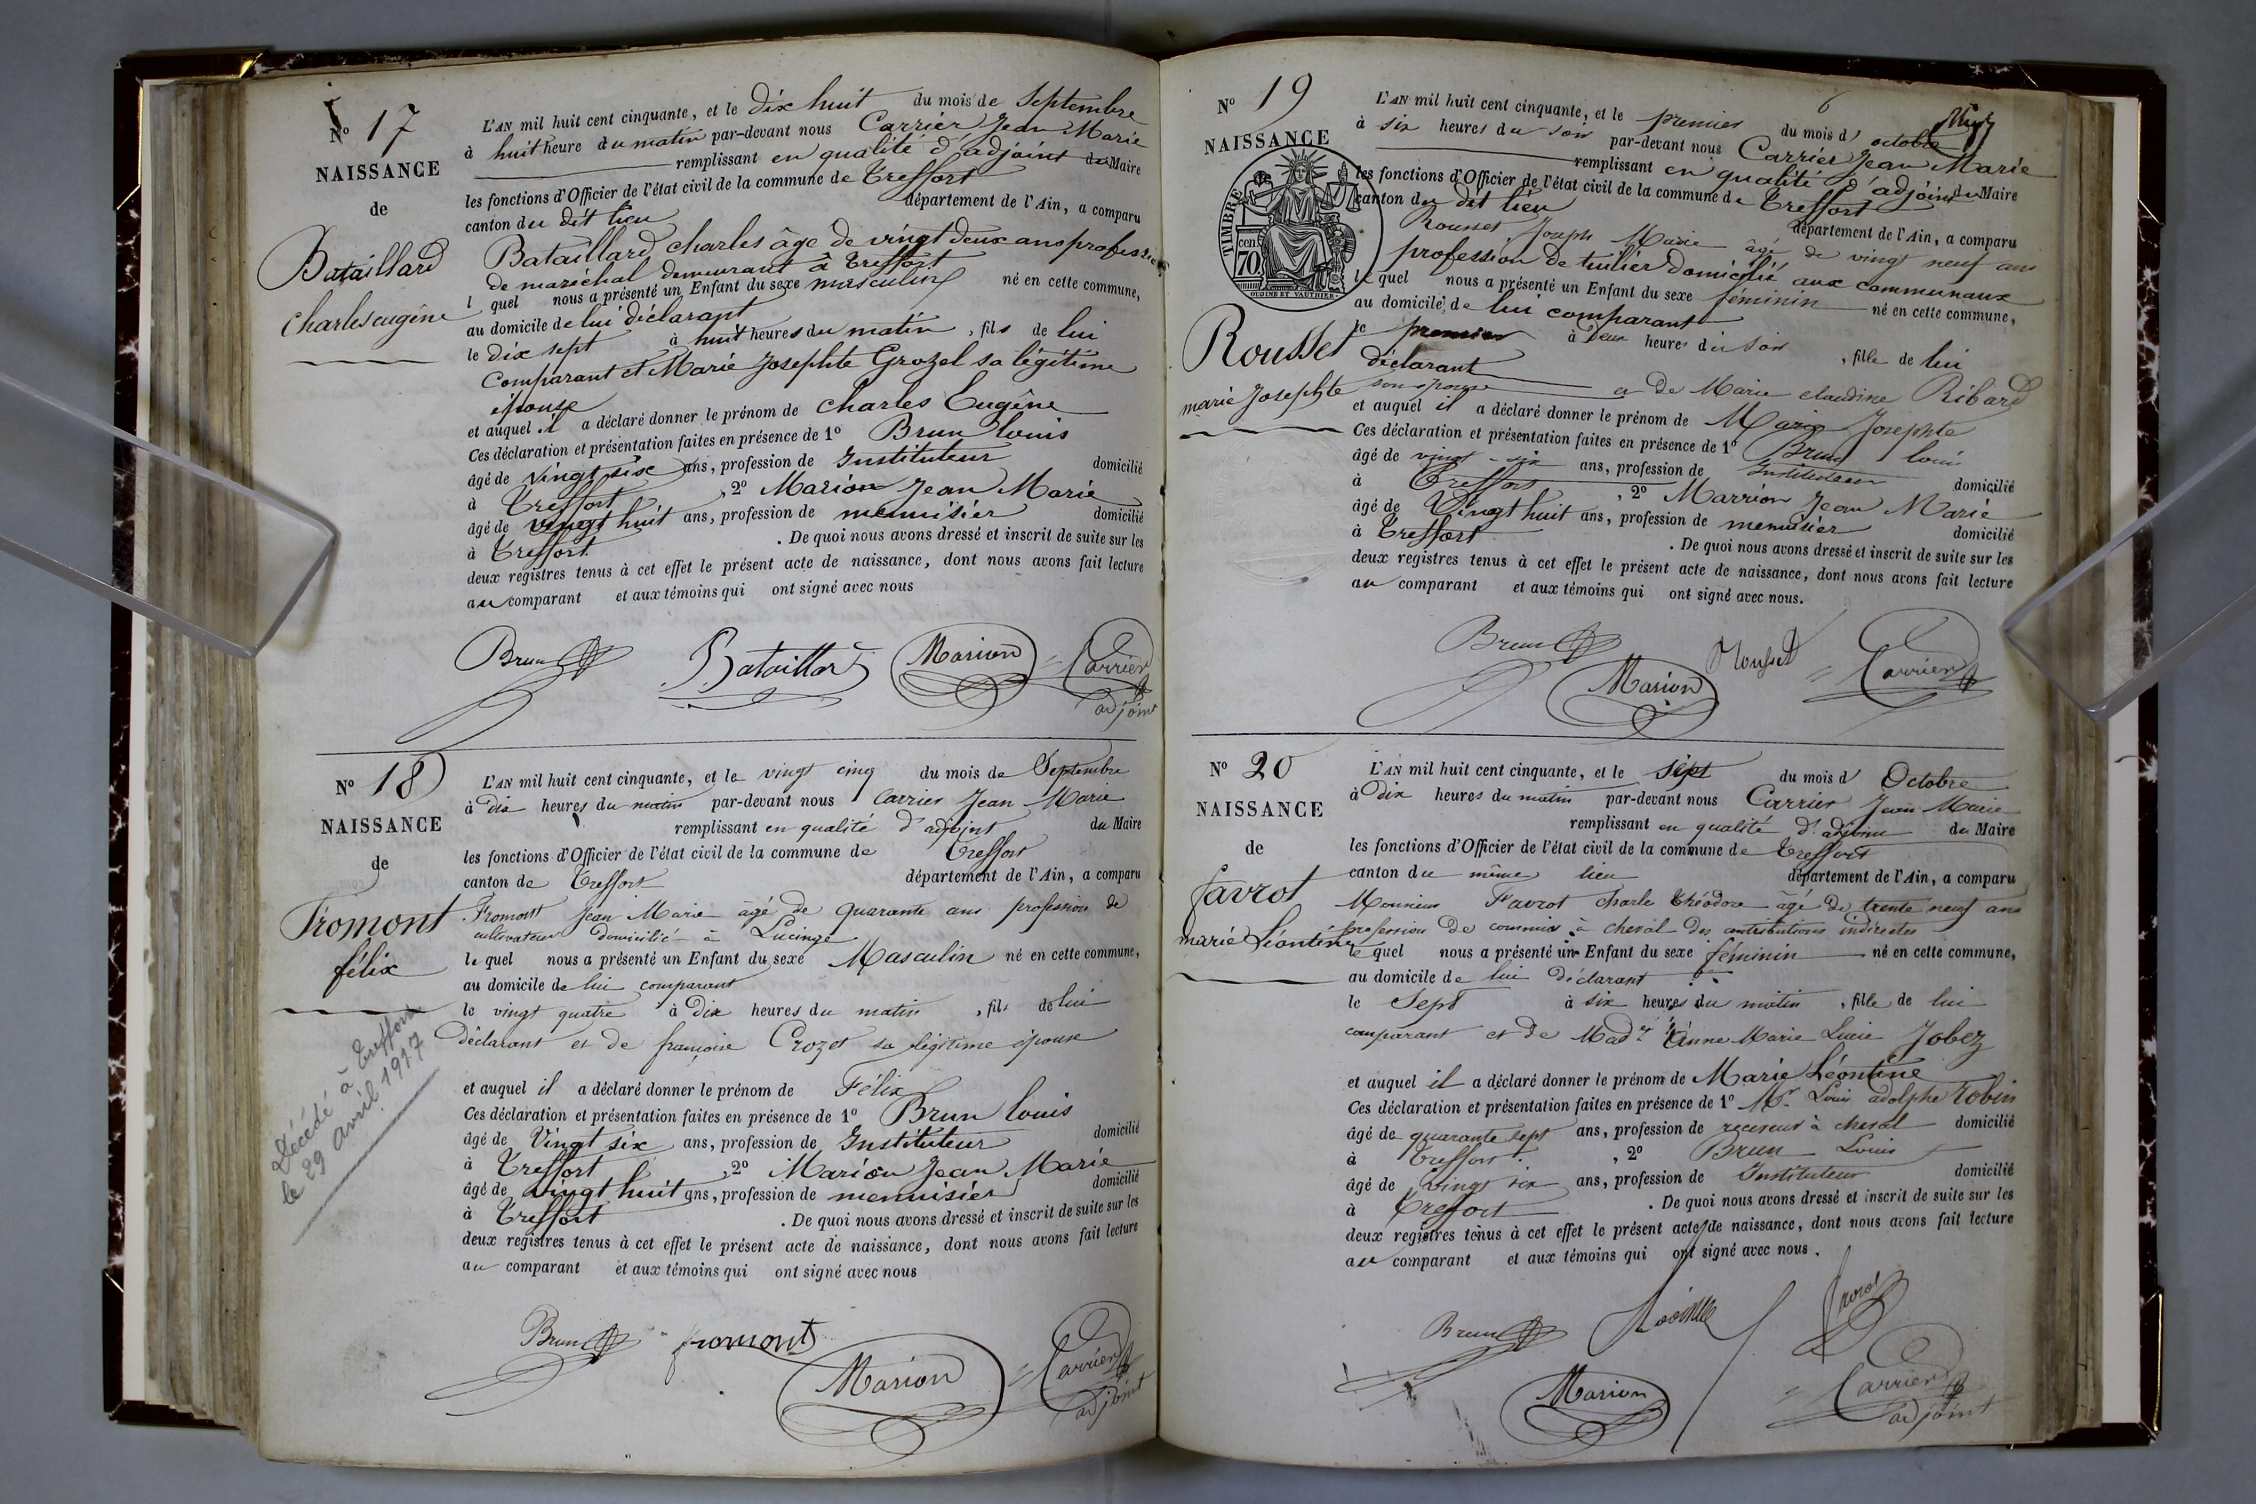 N° 17
NAISSANCE
de
Bataillard
Charles eugène
L'AN mil huit cent cinquante, et le dix huit du mois de Septembre
à huit heure du matin par-devant nous Carrier Jean Marie
remplissant en qualité d'adjoint du Maire
les fonctions d'Officier de l'état civil de la commune de Treffort
canton du dit lieu département de l'Ain, a comparu
Bataillard charles âge de vingt deux ans profession
de maréchal demeurant à Treffort
l quel nous a présenté un Enfant du sexe masculin né en cette commune,
au domicile de lui déclarant
le dix sept à huit heures du matin, fils de lui
Comparant et Marie Josephte Grozel sa légitime
épouse
et auquel il a déclaré donner le prénom de Charles Eugêne
Ces déclaration et présentation faites en présence de 1° Brun louis
âgé de vingt six ans, profession de Instituteur domicilié
à Treffort, 2° Marion Jean Marie
âgé de vingt huit ans, profession de menuisier domicilié
à Treffort. De quoi nous avons dressé et inscrit de suite sur les
deux registres tenus à cet effet le présent acte de naissance, dont nous avons fait lecture
au comparant et aux témoins qui ont signé avec nous
Brun Bataillard Marion Carrier
adjoint
N° 18
NAISSANCE
de
Fromont
félix
Décédé à Treffort
le 29 avril 1917
L'AN mil huit cent cinquante, et le vingt cinq du mois de Septembre
à dix heures du matin par-devant nous Carrier Jean Marie
remplissant en qualité d'adjoint du Maire
les fonctions d'Officier de l'état civil de la commune de Treffort
canton de Treffort département de l'Ain, a comparu
Fromont Jean Marie âgé de quarante ans profession de
cultivateur domicilié à Lucinge
le quel nous a présenté un Enfant du sexe Masculin né en cette commune,
au domicile de lui comparant
le vingt quatre à dix heures du matin, fils de lui
déclarant et de françoise Crozet sa légitime épouse
et auquel il a déclaré donner le prénom de Félix
Ces déclaration et présentation faites en présence de 1° Brun louis
âgé de Vingt six ans, profession de Instituteur domicilié
à Treffort, 2° Marion Jean Marie
âgé de vingt huit ans, profession de menuisier domicilié
à Treffort. De quoi nous avons dressé et inscrit de suite sur les
deux registres tenus à cet effet le présent acte de naissance, dont nous avons fait lecture
au comparant et aux témoins qui ont signé avec nous
Brun fromont Marion Carrier
adjoint
6
N° 19
NAISSANCE
TIMBRE
70 cen
OUDINÉ ET VAUTHIER
Rousset
marie Josephte
L'AN mil huit cent cinquante, et le premier du mois d'octobre
à six heures du soir par-devant nous Carrier Jean Marie
remplissant en qualité d'adjoint du Maire
les fonctions d'Officier de l'état civil de la commune de Treffort
canton du dit lieu département de l'Ain, a comparu
Rousset Joseph Marie âgé de vingt neuf ans
profession de tuilier domicilié aux communaux
le quel nous a présenté un Enfant du sexe féminin né en cette commune,
au domicile de lui comparant
le premier à deux heures du soir, fille de lui
déclarant et de Marie claudine Ribard
son épouse
et auquel il a déclaré donner le prénom de Marie Josephte
Ces déclaration et présentation faites en présence de 1° Brun loui
âgé de vingt-six ans, profession de Instituteur domicilié
à Treffort, 2° Marrion Jean Marie
âgé de Vingt huit ans, profession de menuisier domicilié
à Treffort. De quoi nous avons dressé et inscrit de suite sur les
deux registres tenus à cet effet le présent acte de naissance, dont nous avons fait lecture
au comparant et aux témoins qui ont signé avec nous.
Brun Marion Rousset Carrier
N° 20
NAISSANCE
de
favrot
marie Léontine
L'AN mil huit cent cinquante, et le sept du mois d'Octobre
à dix heures du matin par-devant nous Carrier Jean Marie
remplissant en qualité d'adjoint du Maire
les fonctions d'Officier de l'état civil de la commune de Treffort
canton du même lieu département de l'Ain, a comparu
Monsieur Favrot charle théodore âgé de trente neuf ans
profession de commis à cheval des contributions indirectes
le quel nous a présenté un Enfant du sexe féminin né en cette commune,
au domicile de lui déclarant
le Sept à six heures du matin, fille de lui
comparant et de Mad.e Anne Marie Lucie Jobez
et auquel il a déclaré donner le prénom de Marie Léontine
Ces déclaration et présentation faites en présence de 1° Mr Louis adolphe
âgé de quarante sept ans, profession de receveur à cheval domicilié
à Treffort, 2° Brun Louis
âgé de vingt six ans, profession de Instituteur domicilié
à Treffort. De quoi nous avons dressé et inscrit de suite sur les
deux registres tenus à cet effet le présent acte de naissance, dont nous avons fait lecture
au comparant et aux témoins qui ont signé avec nous.
Brun favrot
Marion Carrier
adjoint